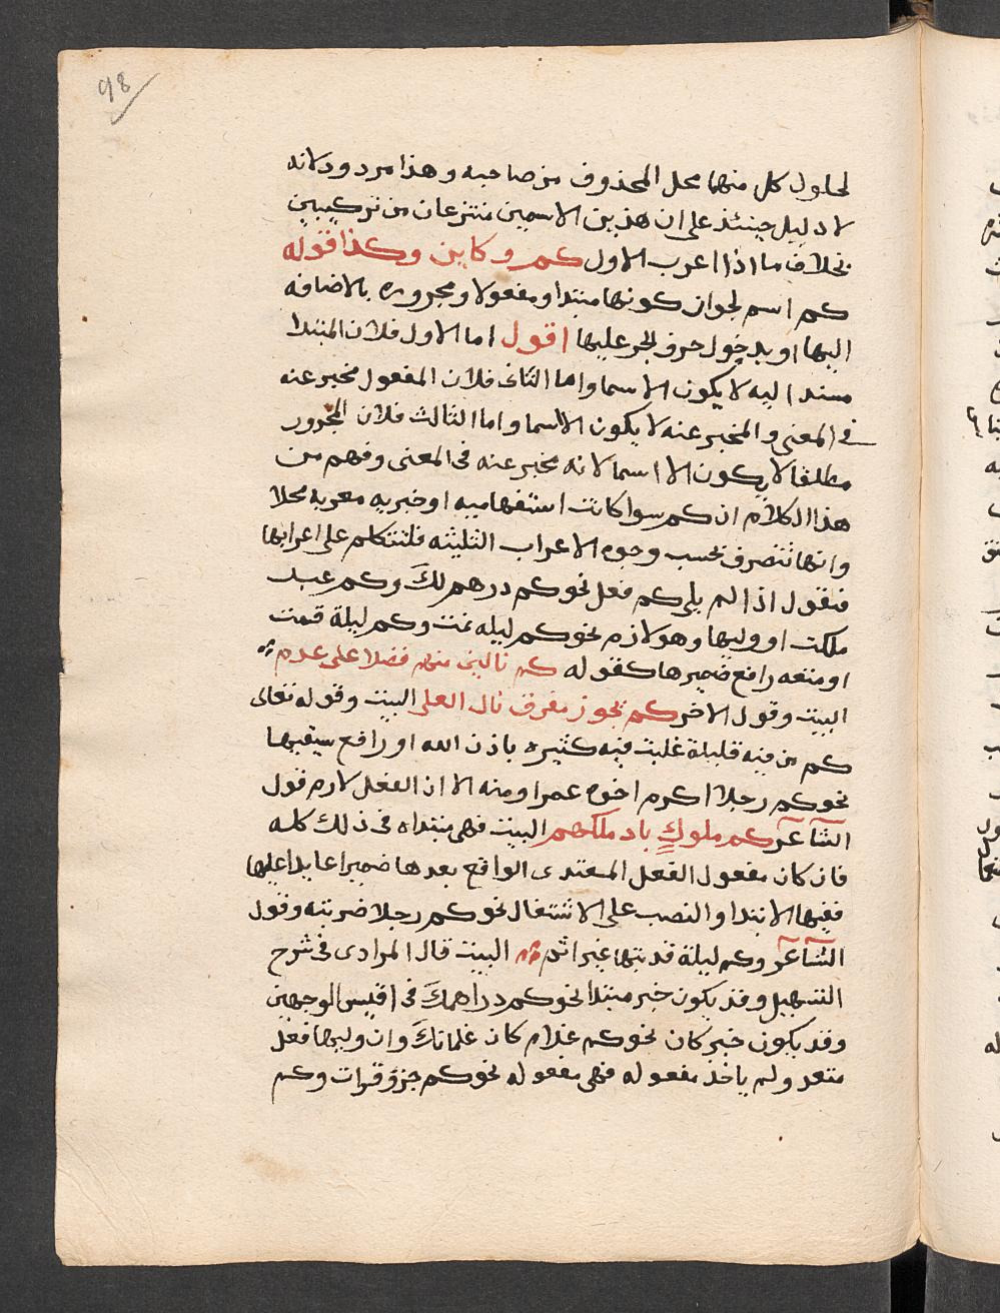 98
لحلول كل منهما محل المحذوف من صاحبه وهذا مردود لانه
لا دليل حينئذ على ان هذين الاسمين منتزعان من تركيبين
بخلاف ما اذا اعرب الاول كم وكاين وكذا قوله
كم اسم لجواز كونها مبتدا ومفعولا ومجروره بالاضافه
اليها او بدخول حرف الجر عليها اقول اما الاول فلان المبتدا
مسند اليه لا يكون الا اسما واما الثانى فلان المفعول مخبر عنه
فى المعنى والمخبر عنه لا يكون الا اسما واما الثالث فلان المجرور
مطلقا لا يكون الا اسما لانه مخبر عنه فى المعنى وفهم من
هذا الكلام ان كم سوا كانت استفهاميه او خبريه معربه محلا
وانها تتصرف بحسب وجوه الاعراب الثلثه فلنتكلم على اعرابها
فنقول اذا لم يلى كم فعل نحو كم درهم لك وكم عبد
ملكت او وليها وهو لازم نحو كم ليله نمت وكم ليلة قمت
او متعد رافع ضميرها كقوله كم نالنى منهم فضلا على عدم
البيت وقول الاخر كم بجود مقرف نال العلى البيت وقوله تعالى
كم من فيه قليلة غلبت فيه كثيره باذن الله او رافع سببيها
نحو كم رجلا اكرم اخوه عمرا ومنه الا ان الفعل لازم قول
الشاعر كم ملوك باد ملكهم البيت فهى مبتداه فى ذلك كله
فان كان مفعول الفعل المتعدى الواقع بعدها ضميرا عايدا عليها
ففيها الابتدا والنصب على الاشتغال نحو كم رجلا ضربته وقول
الشاعر وكم ليلة قد بتها غير اثم البيت قال المرادى فى شرح
التسهيل وقد يكون خبر مبتدا نحو كم دراهمك فى اقيس الوجهين
وقد يكون خبر كان نحو كم غلام كان غلمانك وان وليها فعل
متعد ولم ياخذ مفعوله فهى مفعوله نحو كم جزؤ قرات وكم